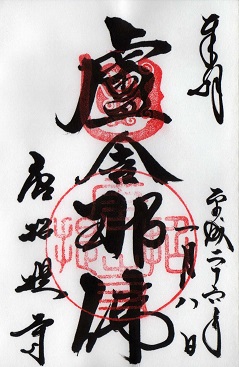 奉拝
平成二十六年
一月八日
盧舎那佛
唐招提寺